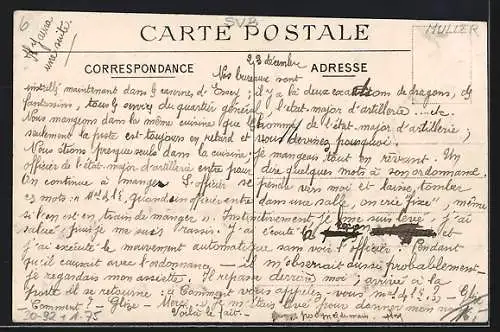 6
SVB
MULIER
Il y aura
une suite.
CARTE POSTALE
23 décembre
CORRESPONDANCE
ADRESSE
Nos bureaux sont
installé maintenant dans les environs de ; il y a ici deux escadrons de dragons, des
fantassins, tous les du quartier général, l'état-major d'artillerie ... etc.
Nous mangeons dans la même cuisine que les hommes de l'état-major d'artillerie ;
seulement la poste est toujours en retard et vous devinez pourquoi.
Nous étions presque seuls dans la cuisine, je mangeais tout en rêvant. Un
officier de l'état-major d'artillerie entre pour dire quelques mots à son ordonnance.
On continue à manger. L'officier se penche vers moi et laisse tomber
ces mots « quand un officier entre dans une salle, on crie "fixe", même
si l'on est en train de manger ». Instinctivement je me suis levé, j'ai
salué puis je me suis rassis. J'ai écouté et
j'ai exécuté le mouvement automatique son voir l'officier. Pendant
qu'il causait avec l'ordonnance, il m'observait aussi probablement.
Je regardais mon assiette. Il repasse derrière moi ; arrivé à la
porte il se retourne : « Comment vous appelez-vous
Comment ? je m'suis levé pour donner mon nom
30-92 + 1-75
Voilà le fait.